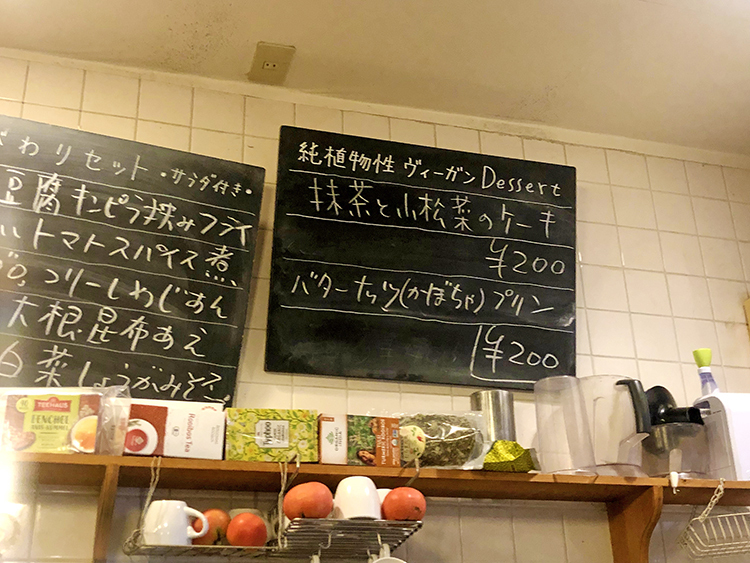 わりセット・サラダ付き・
豆腐キンピラ挟みフライ
トマトスパイス煮
大根昆布あえ
白菜しょうがみそ
純植物性 ヴィーガン Dessert
抹茶と小松菜のケーキ
¥200
バターナッツ(かぼちゃ)プリン
¥200
TEEHAUS
FENCHEL
Rooibos Tea